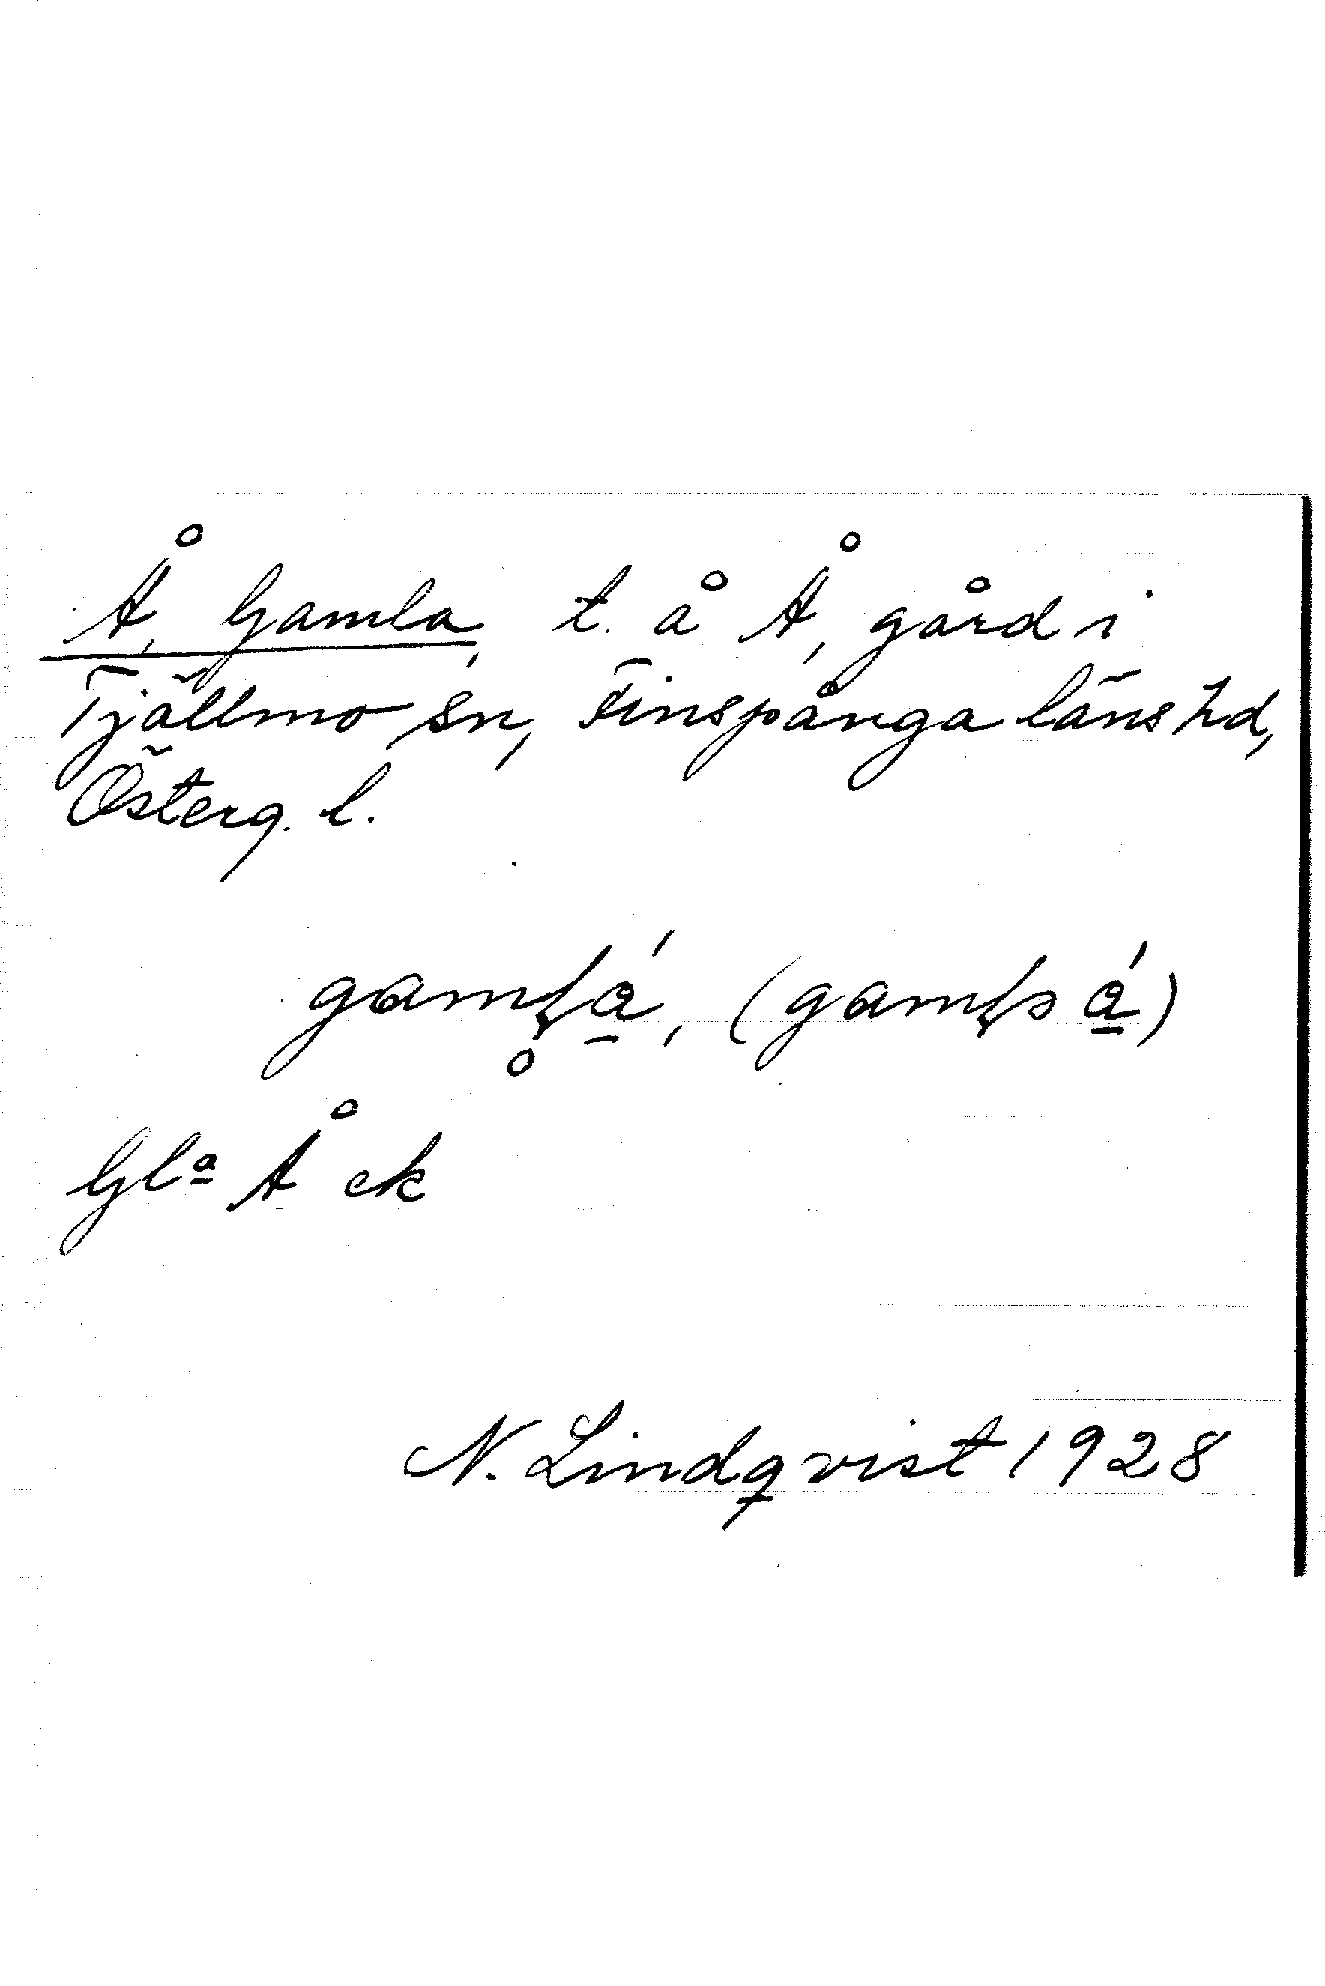 Å, Gamla, t. å Å, gård i
Tjällmo sn, Finspånga läns hd,
Österg. l.
gamḷǻ, (gamḷs ǻ)
Gla Å ek
N. Lindqvist 1928